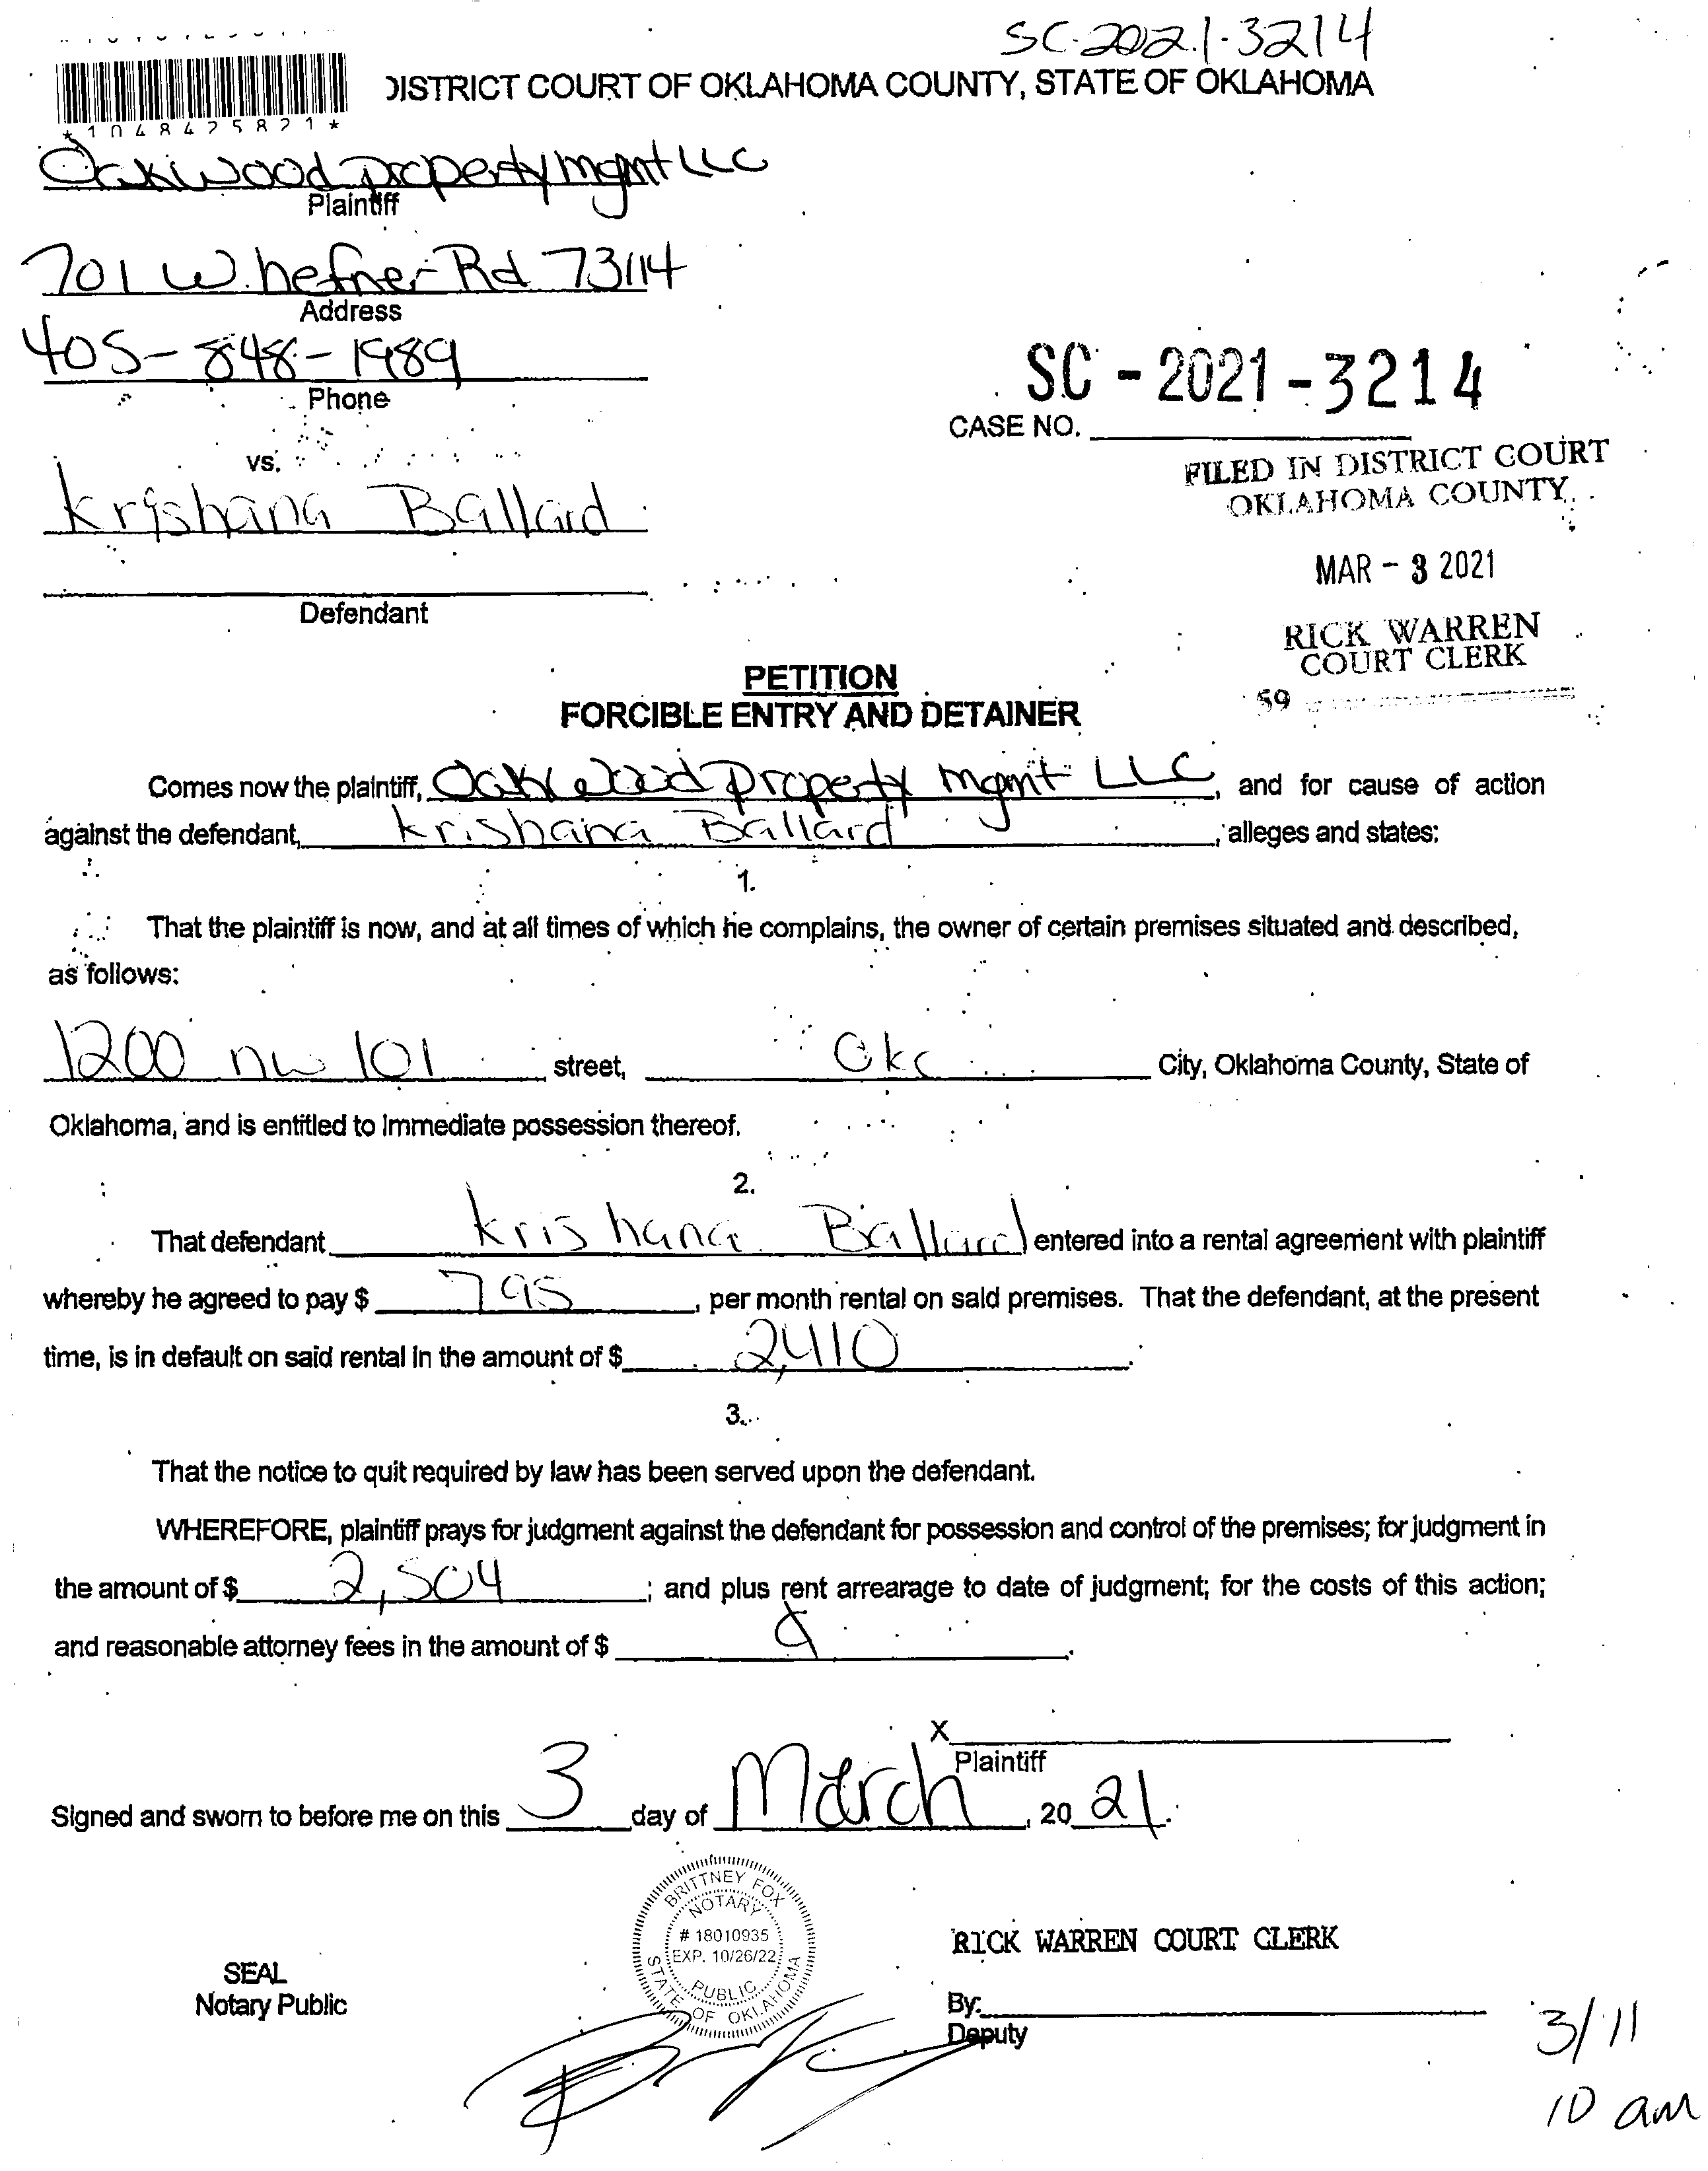 SC-2021-3214
*1048425821*
DISTRICT COURT OF OKLAHOMA COUNTY, STATE OF OKLAHOMA
Oakwood property mgmt LLC
Plaintiff
701 W. hefner Rd 73114
Address
405-848-1989
Phone
SC - 2021 - 3214
CASE NO.
vs.
FILED IN DISTRICT COURT
OKLAHOMA COUNTY
Krishana Ballard
MAR - 3 2021
Defendant
RICK WARREN
COURT CLERK
59
PETITION
FORCIBLE ENTRY AND DETAINER
Comes now the plaintiff, Oakwood property mgmt LLC, and for cause of action
against the defendant, Krishana Ballard, alleges and states:
1.
That the plaintiff is now, and at all times of which he complains, the owner of certain premises situated and described,
as follows:
1200 nw 101 street, Okc City, Oklahoma County, State of
Oklahoma, and is entitled to immediate possession thereof.
2.
That defendant Krishana Ballard entered into a rental agreement with plaintiff
whereby he agreed to pay $ 795, per month rental on said premises. That the defendant, at the present
time, is in default on said rental in the amount of $ 2,410.
3.
That the notice to quit required by law has been served upon the defendant.
WHEREFORE, plaintiff prays for judgment against the defendant for possession and control of the premises; for judgment in
the amount of $ 2,504; and plus rent arrearage to date of judgment; for the costs of this action;
and reasonable attorney fees in the amount of $ .
X
Plaintiff
Signed and sworn to before me on this 3 day of March, 20 21.
BRITTNEY FOX
NOTARY
# 18010935
EXP. 10/26/22
PUBLIC
STATE OF OKLAHOMA
RICK WARREN COURT CLERK
SEAL
Notary Public
By:
Deputy
3/11
10 am